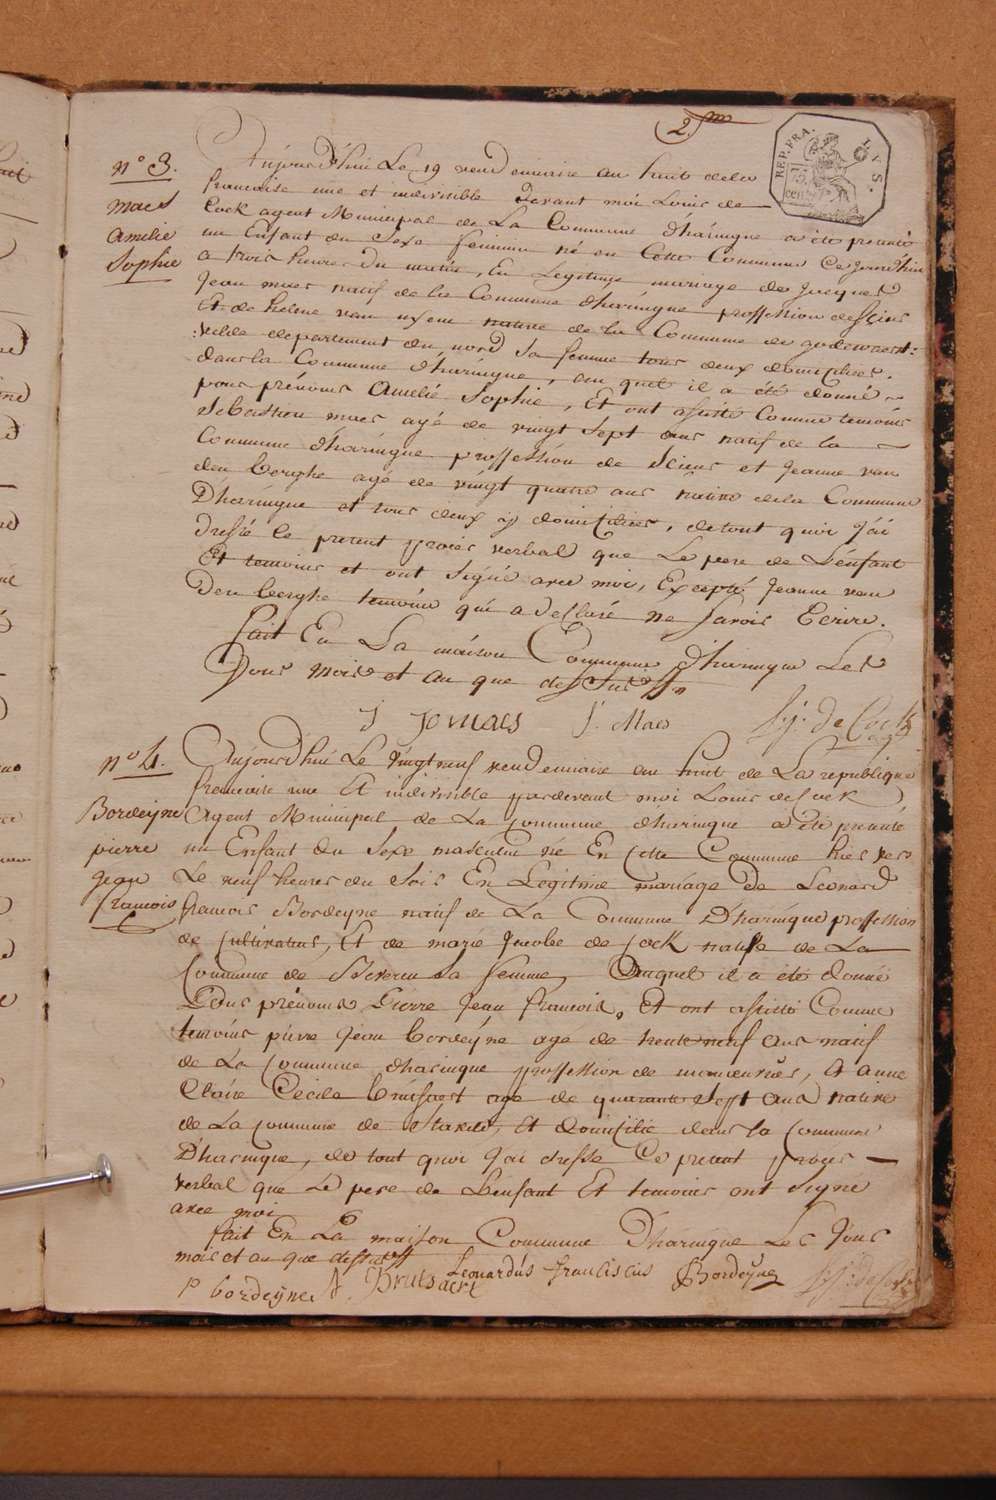 2.me
REP. FRA.
n° 3.
maes
Amelie
Sophie
Aujourd'hui Le 19 vendemiaire an huit de la
francaise une et indivisible Devant moi Louis de
Cock agent Municipal de La Commune d'haringue a été presenté
un Enfant du Sexe feminin né en Cette Commune Ce jourd'hui
a trois heures du matin, En Legitime mariage de Jacques
Jean maes natif de la Commune d'haringue proffession de
Et de helene van uxem native de la Commune de godewaers:
:velde departement du nord Sa femme tous deux domicilies.
dans la Commune d'haringue, au quel il a été donné
pour prénoms Amelié Sophie, Et ont assisté Comme temoins
Sebastien maes agé de vingt Sept ans natif de la
Commune d'haringue proffession de et Jeanne van
den berghe agé de vingt quatre ans native de la Commune
D'haringue et tous deux y domicilies, de tout quoi J'ai
dressé le present procès verbal que Le pere de L'enfant
Et temoins et ont Signé avec moi, Excepté Jeanne van
Den berghe temoin qui a declaré ne Savoir Ecrire.
fait En La maison Commune d'haringue Les
Jour Mois et an que dessus
J Jomaes S. Maes L. J. de Cock
n° 4.
Bordeyne
pierre
jean
francois
Aujourd'hui Le Vingt neuf vendemiaire an huit de La republique
francaise une Et indivisible pardevant moi Louis de Cock
Agent Municipal de La commune d'haringue a été presenté
un Enfant du Sexe masculin né En Cette Commune hier vers
Le neuf heures du Soir En Legitime mariage De Leonard
francois Bordeyne natif de La Commune D'haringue proffession
de Cultivateur, Et de marie Jacobe de Cock native de La
Commune de Beveren Sa femme, Auquel il a été donné
Pour prénoms Pierre Jean francois, Et ont assisté Comme
temoins pierre Jean bordeyne agé de trente neuf ans natif
de La Commune d'haringue proffession de, Et anne
Claire Cecile bruitsaert age de quarante Sept ans native
de La commune de Stavele, Et domicilié dans la Commune
D'haringue, de tout quoi J'ai dressé Ce present proces
verbal que Le pere de L'enfant Et temoins ont Signe
avec moi
fait En La maison Commune D'haringue Les Jour
mois et an que dessus
P bordeyne A. Bruitsaert Leonardus franciscus Bordeyne L. J. de Cock